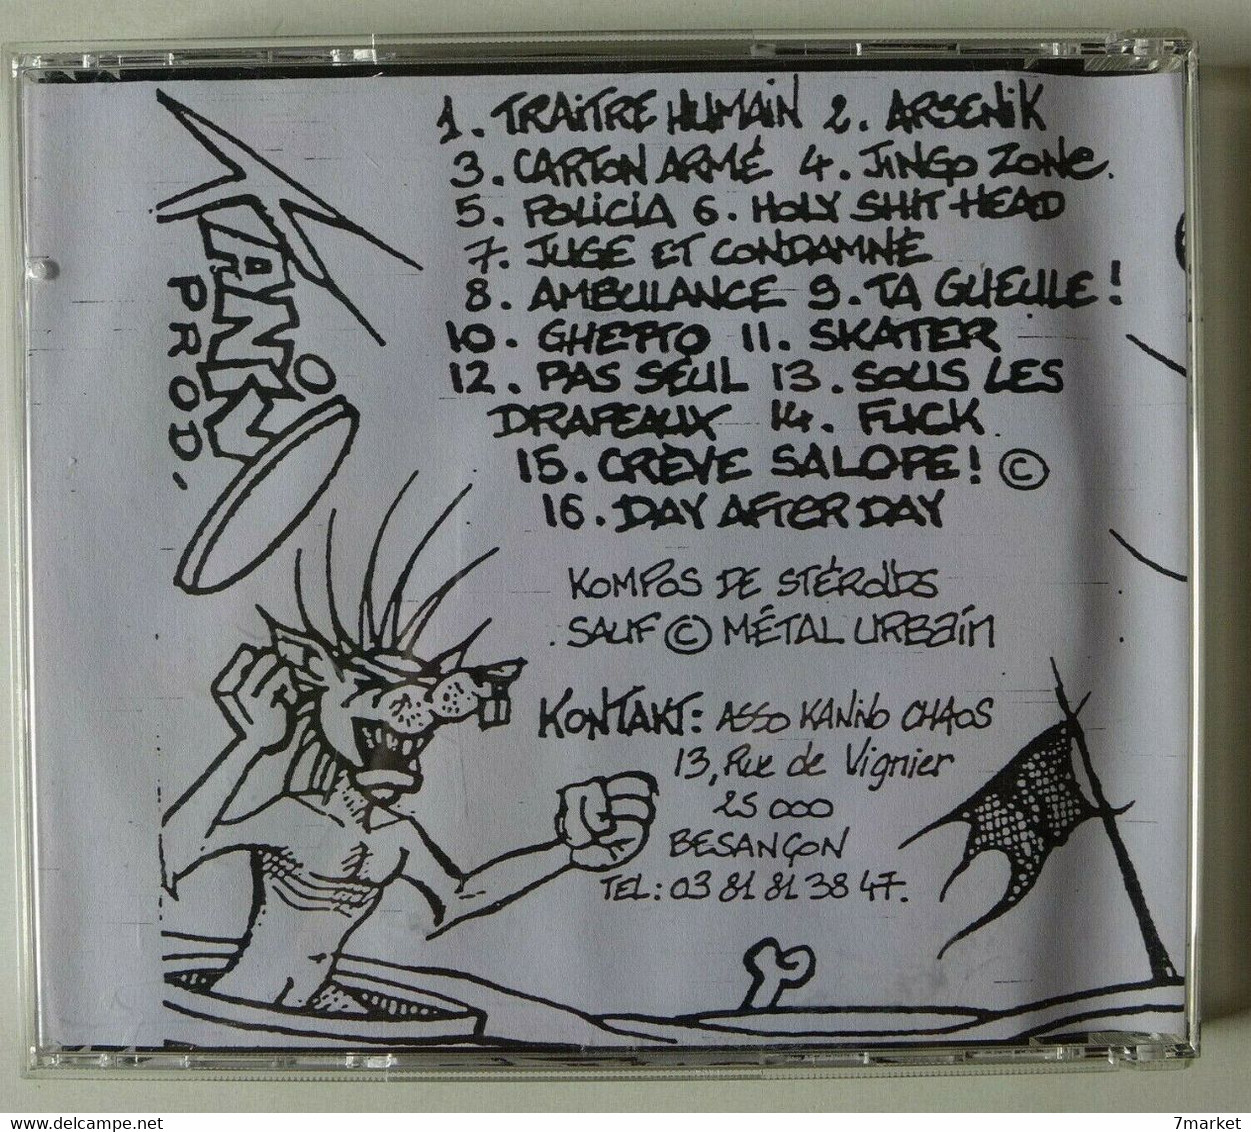 1. TRAITRE HUMAIN 2. ARSENIK
3. CARTON ARMÉ 4. JINGO ZONE.
5. POLICIA 6. HOLY SHIT HEAD
7. JUGE ET CONDAMNÉ
8. AMBULANCE 9. TA GUEULE!
10. GHETTO 11. SKATER
12. PAS SEUL 13. SOUS LES
DRAPEAUX 14. FUCK
15. CRÈVE SALOPE! ©
16. DAY AFTER DAY
KOMPOS DE STÉROÏDS
SAUF © MÉTAL URBAIN
KONTAKT: ASSO KANINO CHAOS
13, Rue de Vignier
25 000
BESANÇON
TEL: 03 81 81 38 47.
KANINO
PROD.
www.delcampe.net
7market